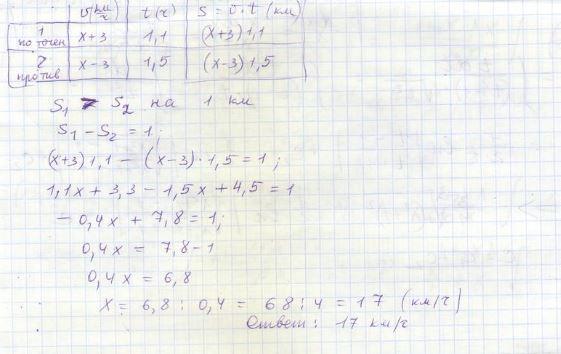 v(км/ч) t(ч) S = v · t (км)
1 по течен x+3 1,1 (x+3)1,1
2 против x-3 1,5 (x-3)1,5
S1 > S2 на 1 км
S1 - S2 = 1;
(x+3)1,1 - (x-3)·1,5 = 1;
1,1x + 3,3 - 1,5x + 4,5 = 1
- 0,4x + 7,8 = 1;
0,4x = 7,8-1
0,4x = 6,8
x = 6,8 : 0,4 = 68 : 4 = 17 (км/ч)
Ответ: 17 км/ч